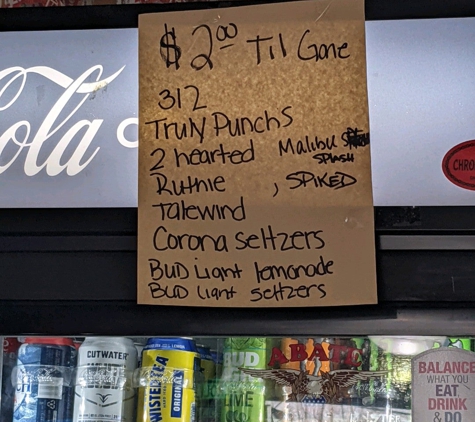 $2.00 Til Gone
312
Truly Punchs
2 hearted Malibu
Splash
Ruthie , SPIKED
Talewind
Corona seltzers
BUD Light lemonade
BUD Light seltzers
ola
CHRO
CUTWATER
TWISTED TEA
ORIGINAL
BUD
LIME
ABAI
BALANCE
WHAT YOU
EAT
DRINK
& DO